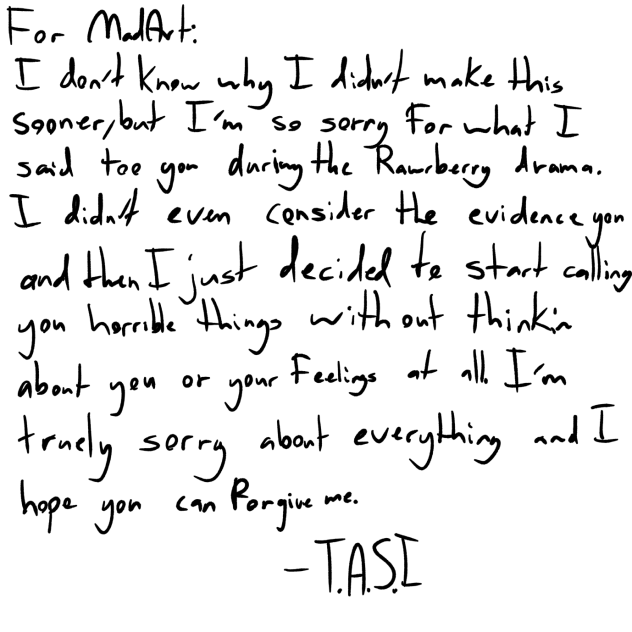 For MadArt:
I don't know why I didn't make this
sooner, but I'm so sorry for what I
said toe you during the Rawrberry drama.
I didn't even consider the evidence you
and then I just decided to start calling
you horrible things without thinkin
about you or your feelings at all. I'm
truely sorry about everything and I
hope you can forgive me.
- T.A.S.I